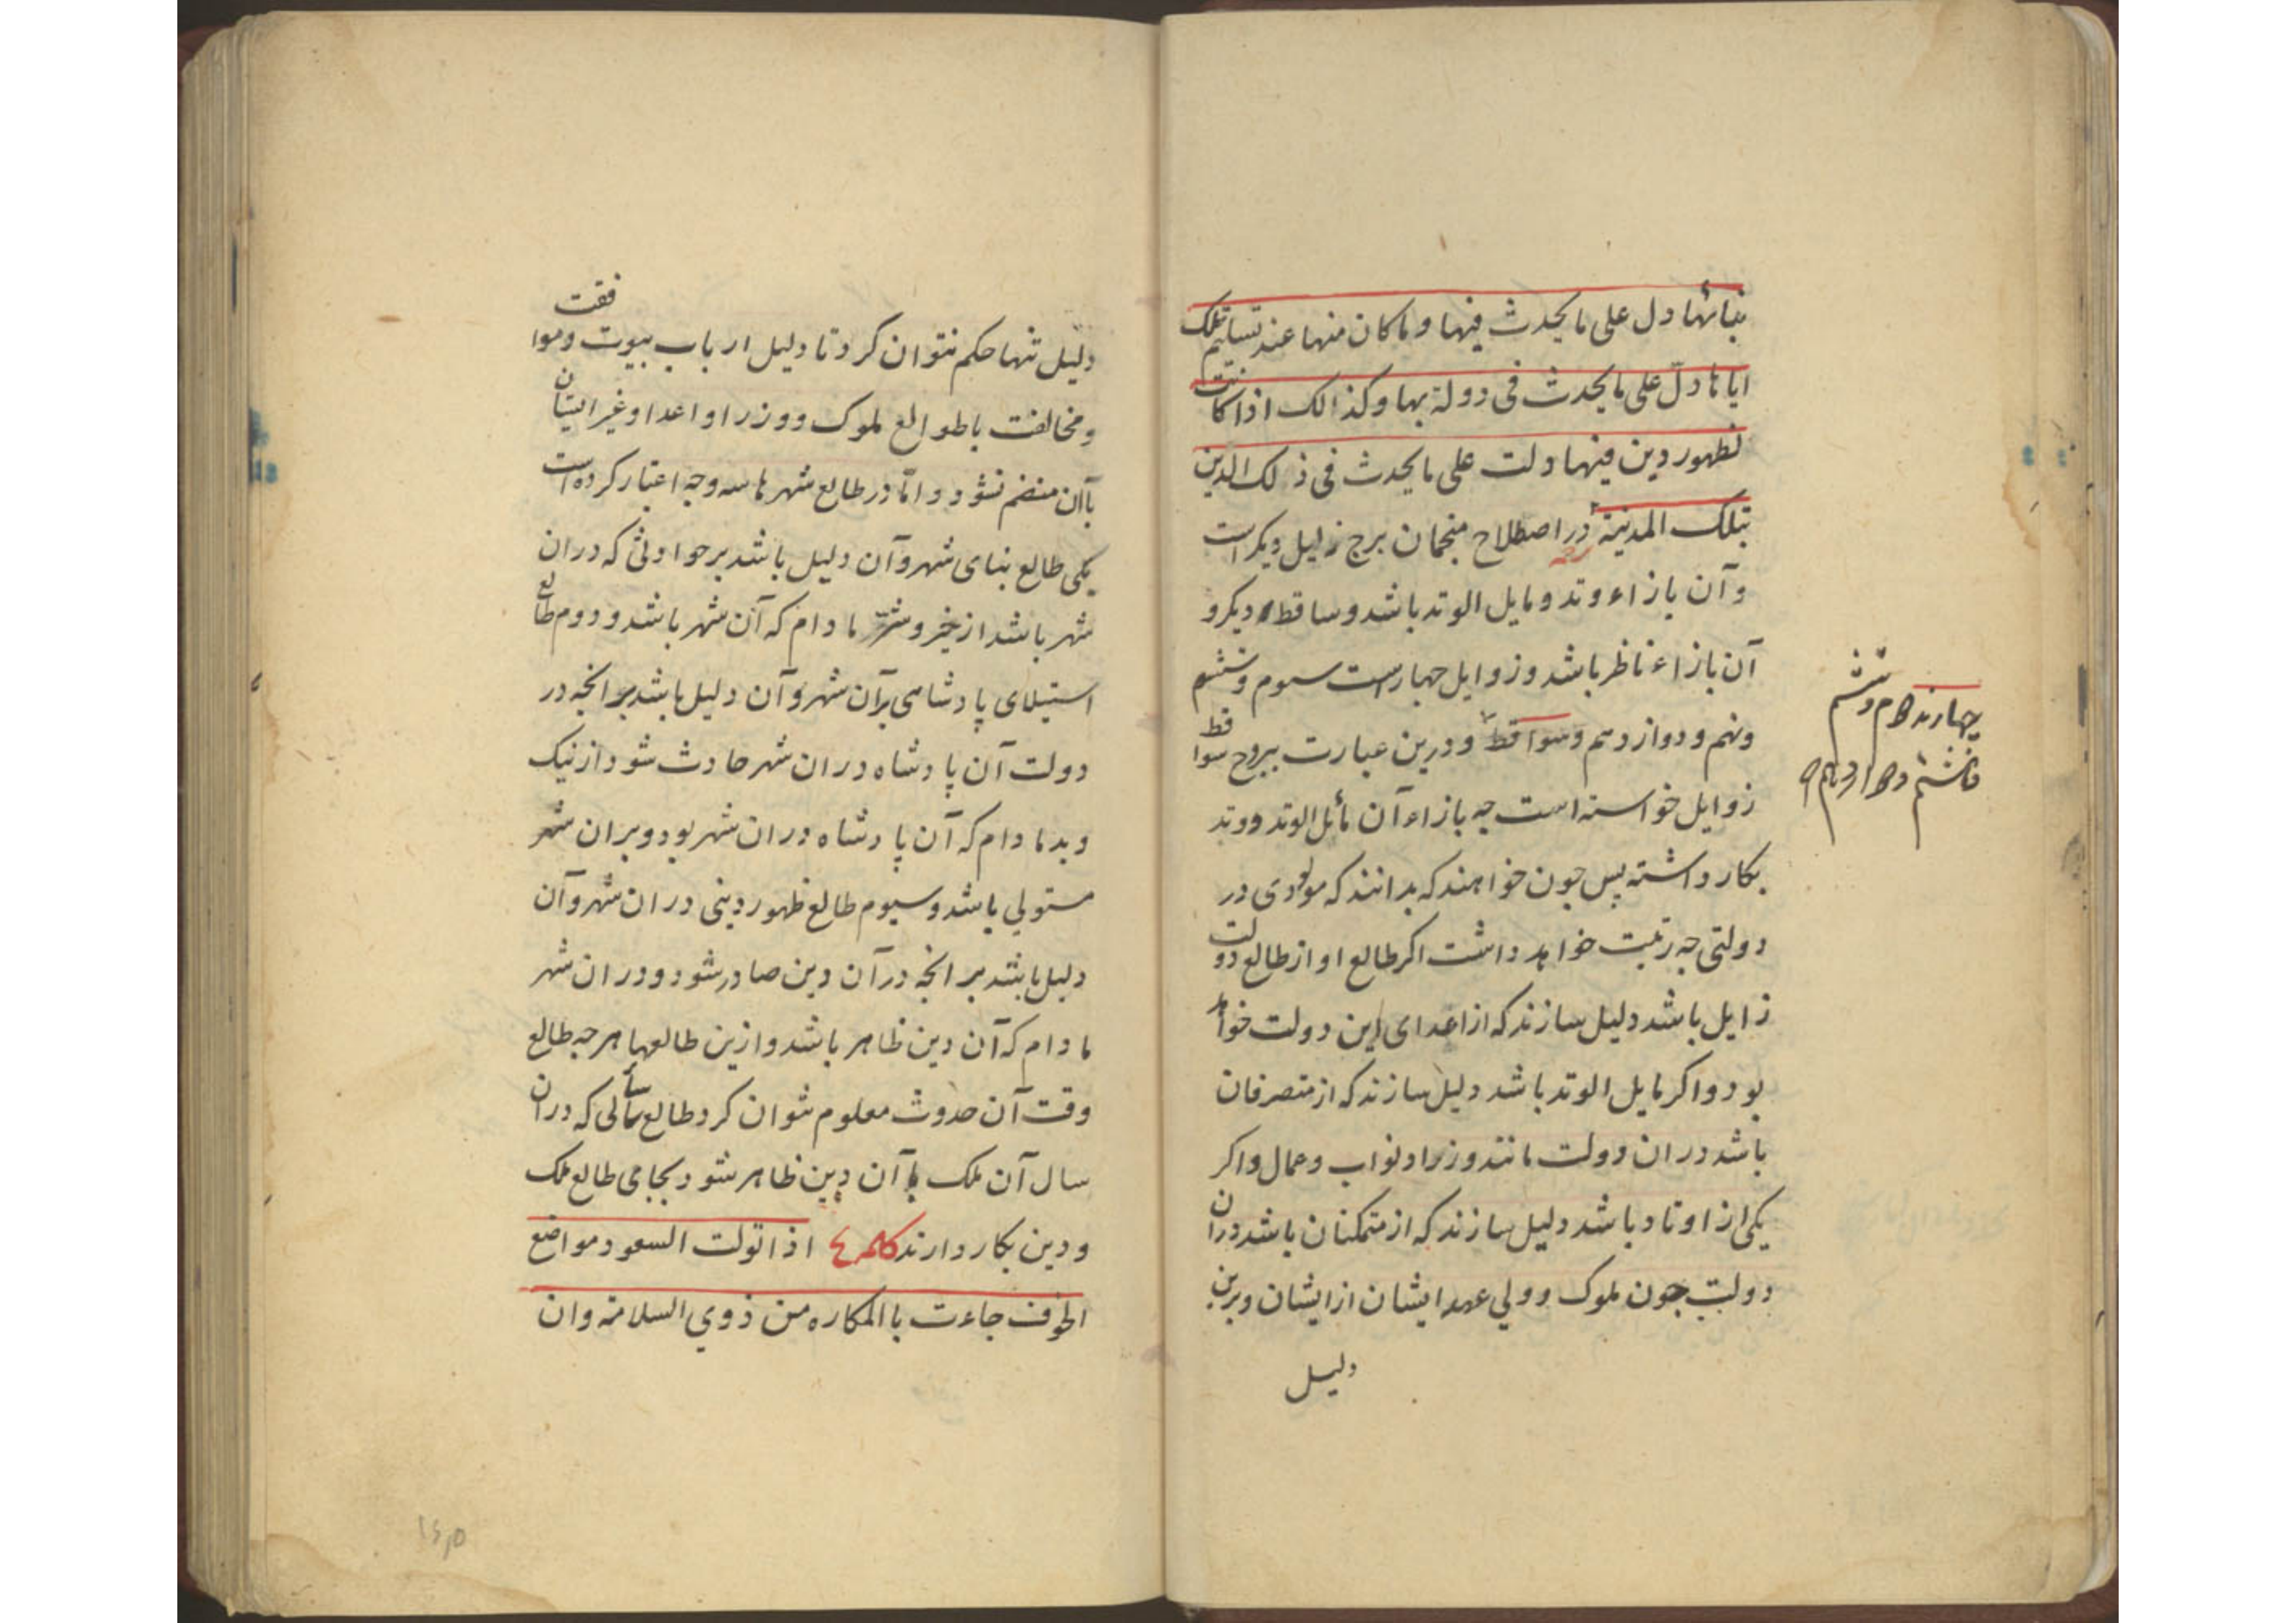 بنائها دل علی ما یحدث فیها و ما کان منها عند تسلیم تلک
ایاها دلّ علی ما یحدث فی دولة بها و کذالک اذا کانت
لظهور دین فیها دلت علی ما یحدث فی ذلک الدین
بتلک المدینة در اصطلاح منجمان برج زایل دیکر است
و آن بازاء وتد و مایل الوتد باشد و ساقط دیکر و
آن بازاء ناظر باشد و زوایل چهارست سوم و ششم
و نهم و دوازدهم و سواقط و درین عبارت ببروج سواقط
زوایل خواسته است چه بازاء آن مائل الوتد و وتد
بکار داشته پس چون خواهند که بدانند که مولودی در
دولتی چه رتبت خواهد داشت اکر طالع او از طالع دولت
زایل باشد دلیل سازند که از اعدای این دولت خواهد
بود و اکر مایل الوتد باشد دلیل سازند که از متصرفان
باشد در ان دولت مانند وزرا و نواب و عمال و اکر
یکی از اوتاد باشد دلیل سازند که از متمکنان باشد دران
دولت چون ملوک و ولی عهد ایشان از ایشان و برین
دلیل
دلیل تنها حکم نتوان کرد تا دلیل ارباب بیوت و موافقت
و مخالفت با طوالع ملوک و وزرا و اعدا و غیر ایشان
باآن منضم نشود و امّا در طالع شهرها سه وجه اعتبار کرده است
یکی طالع بنای شهر و آن دلیل باشد بر حوادثی که دران
شهر باشد از خیر و شرّ ما دام که آن شهر باشد و دوم طالع
استیلای پادشاهی برآن شهر و آن دلیل باشد بر انچه در
دولت آن پادشاه دران شهر حادث شود از نیک
و بد ما دام که آن پادشاه دران شهر بود و بران شهر
مستولی باشد و سیوم طالع ظهور دینی دران شهر و آن
دلیل باشد بر انچه درآن دین صادر شود و دران شهر
ما دام که آن دین ظاهر باشد و ازین طالعها هر چه طالع
وقت آن حدوث معلوم نتوان کرد طالع سالی که دران
سال آن ملک یا آن دین ظاهر شود بجای طالع ملک
و دین بکار دارند کلمه ٤ اذا تولت السعود مواضع
الخوف جاءت باالمکاره من ذوي السلامة و ان